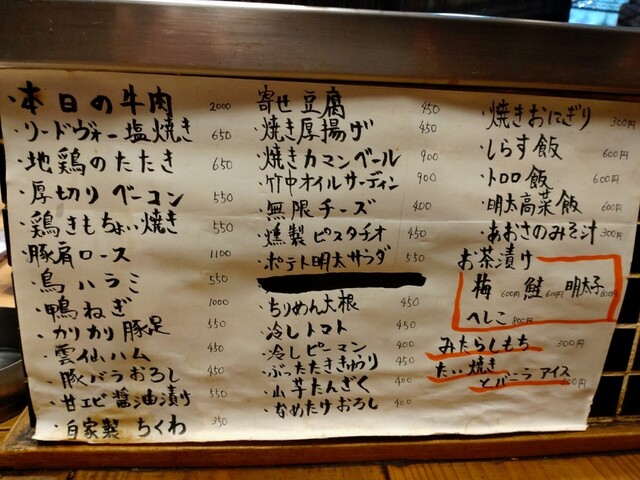 ・本日の牛肉 2000
・リードヴォー塩焼き 650
・地鶏のたたき 650
・厚切りベーコン 550
・鶏きもちょい焼き 550
・豚肩ロース 1100
・鳥ハラミ 550
・鴨ねぎ 1000
・カリカリ豚足 550
・雲仙ハム 450
・豚バラおろし 450
・甘エビ醤油漬け 550
・自家製ちくわ 350
寄せ豆腐 450
・焼き厚揚げ 450
・焼きカマンベール 900
・竹中オイルサーディン 900
・無限チーズ 400
・燻製ピスタチオ 400
・ポテト明太サラダ 550
・ちりめん大根 450
・冷しトマト 450
・冷しピーマン 400
・ぶったたききゅうり 450
・山芋たんざく 400
・なめたけおろし 400
・焼きおにぎり 300円
・しらす飯 600円
・トロロ飯 600円
・明太高菜飯 600円
・あおさのみそ汁 300円
お茶漬け
梅 600円 鮭 600円 明太子 600円
へしこ 800円
みたらしもち 300円
たい焼き
とバニラアイス